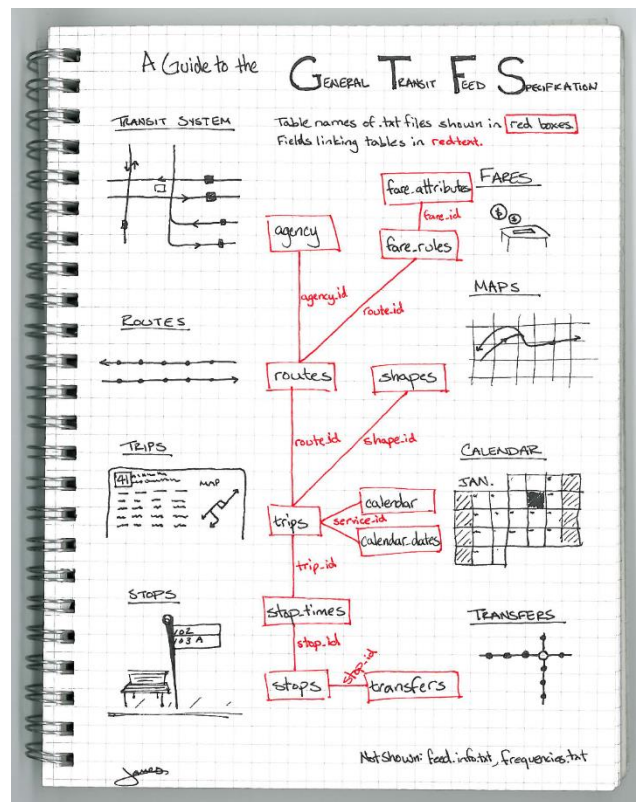 A Guide to the GENERAL TRANSIT FEED SPECIFICATION
Table names of .txt files shown in red boxes.
Fields linking tables in red text.
TRANSIT SYSTEM
fare_attributes
FARES
fare_id
$ $
agency
fare_rules
agency_id
route_id
MAPS
ROUTES
routes
shapes
route_id
shape_id
TRIPS
41
MAP
CALENDAR
JAN.
calendar
trips
service_id
calendar_dates
trip_id
STOPS
102
103A
stop_times
TRANSFERS
stop_id
stop_id
stops
transfers
Not shown: feed_info.txt, frequencies.txt
James